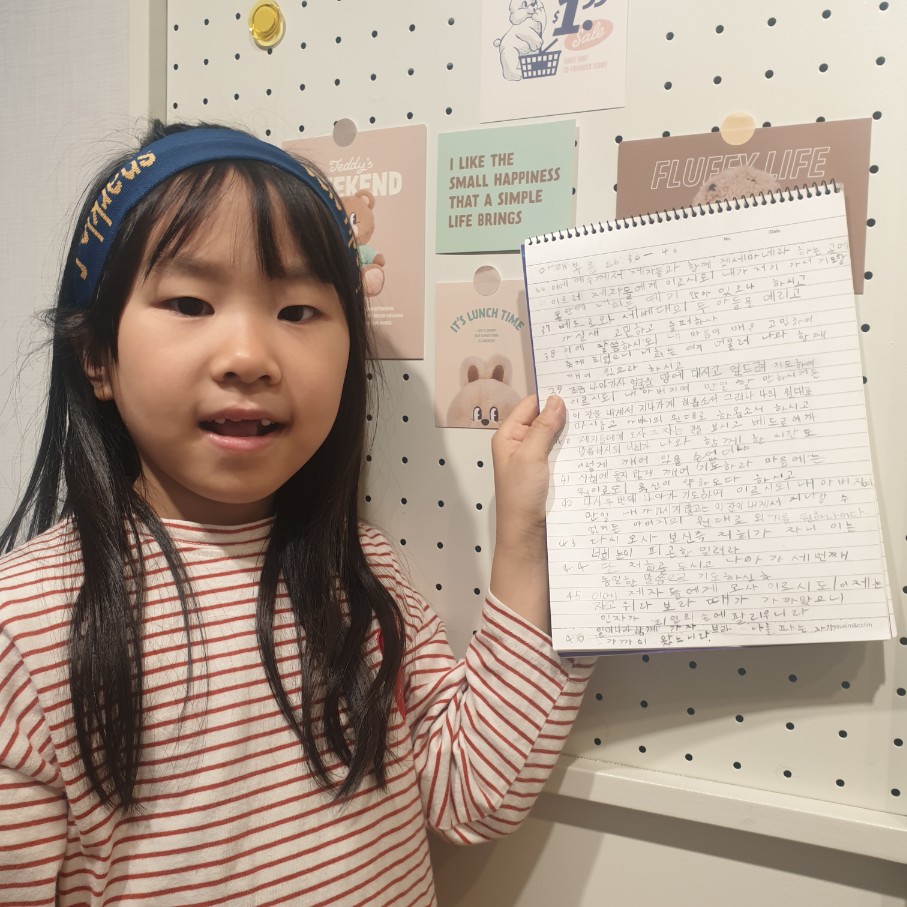 $1.99
Sale
Teddy's
WEEKEND
I LIKE THE
SMALL HAPPINESS
THAT A SIMPLE
LIFE BRINGS
FLUFFY LIFE
IT'S LUNCH TIME
26:36-46
이에 예수께서 제자들과 함께 겟세마네라 하는 곳에
이르러 제자들에게 이르시되 내가 저기 가서 기도할
동안에 너희는 여기 앉아 있으라 하시고
37 베드로와 세베대의 두 아들을 데리고
가실새 고민하고 슬퍼하사
38 이에 말씀하시되 내 마음이 매우 고민하여
죽게 되었으니 너희는 여기 머물러 나와 함께
깨어 있으라 하시고
39 나아가사 얼굴을 땅에 대시고 엎드려 기도하여
이르시되 내 아버지여 만일 할 만하시거든
이 잔을 내게서 지나가게 하옵소서 그러나 나의 원대로
마시옵고 아버지의 원대로 하옵소서 하시고
제자들에게 오사 그 자는 것을 보시고 베드로에게
말씀하시되 너희가 나와 함께 한 시간도
이렇게 깨어 있을 수 없더냐
41 시험에 들지 않게 깨어 기도하라 마음에는
원이로되 육신이 약하도다 하시고
42 다시 두 번째 나아가 기도하여 이르시되 내 아버지여
만일 내가 마시지 않고는 이 잔이 내게서 지나갈 수
없거든 아버지의 원대로 되기를 원하나이다
43 다시 오사 보신즉 저희가 자니 이는
저희 눈이 피곤함일러라
44 또 저희를 두시고 나아가 세 번째
동일한 말씀으로 기도하신 후
45 이에 제자들에게 오사 이르시되 이제는
자고 쉬라 보라 때가 가까왔으니
인자가 죄인의 손에 팔리우니라
46 일어나라 함께 가자 보라 나를 파는 자가
가까이 왔느니라